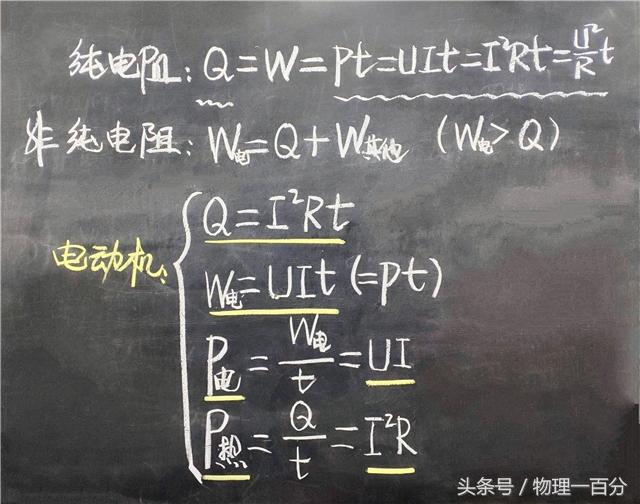 纯电阻: Q=W=Pt=UIt=I²Rt=U²/R t
非纯电阻: W电=Q+W其他 (W电>Q)
电动机:
Q=I²Rt
W电=UIt(=Pt)
P电=W电/t=UI
P热=Q/t=I²R
头条号 / 物理一百分